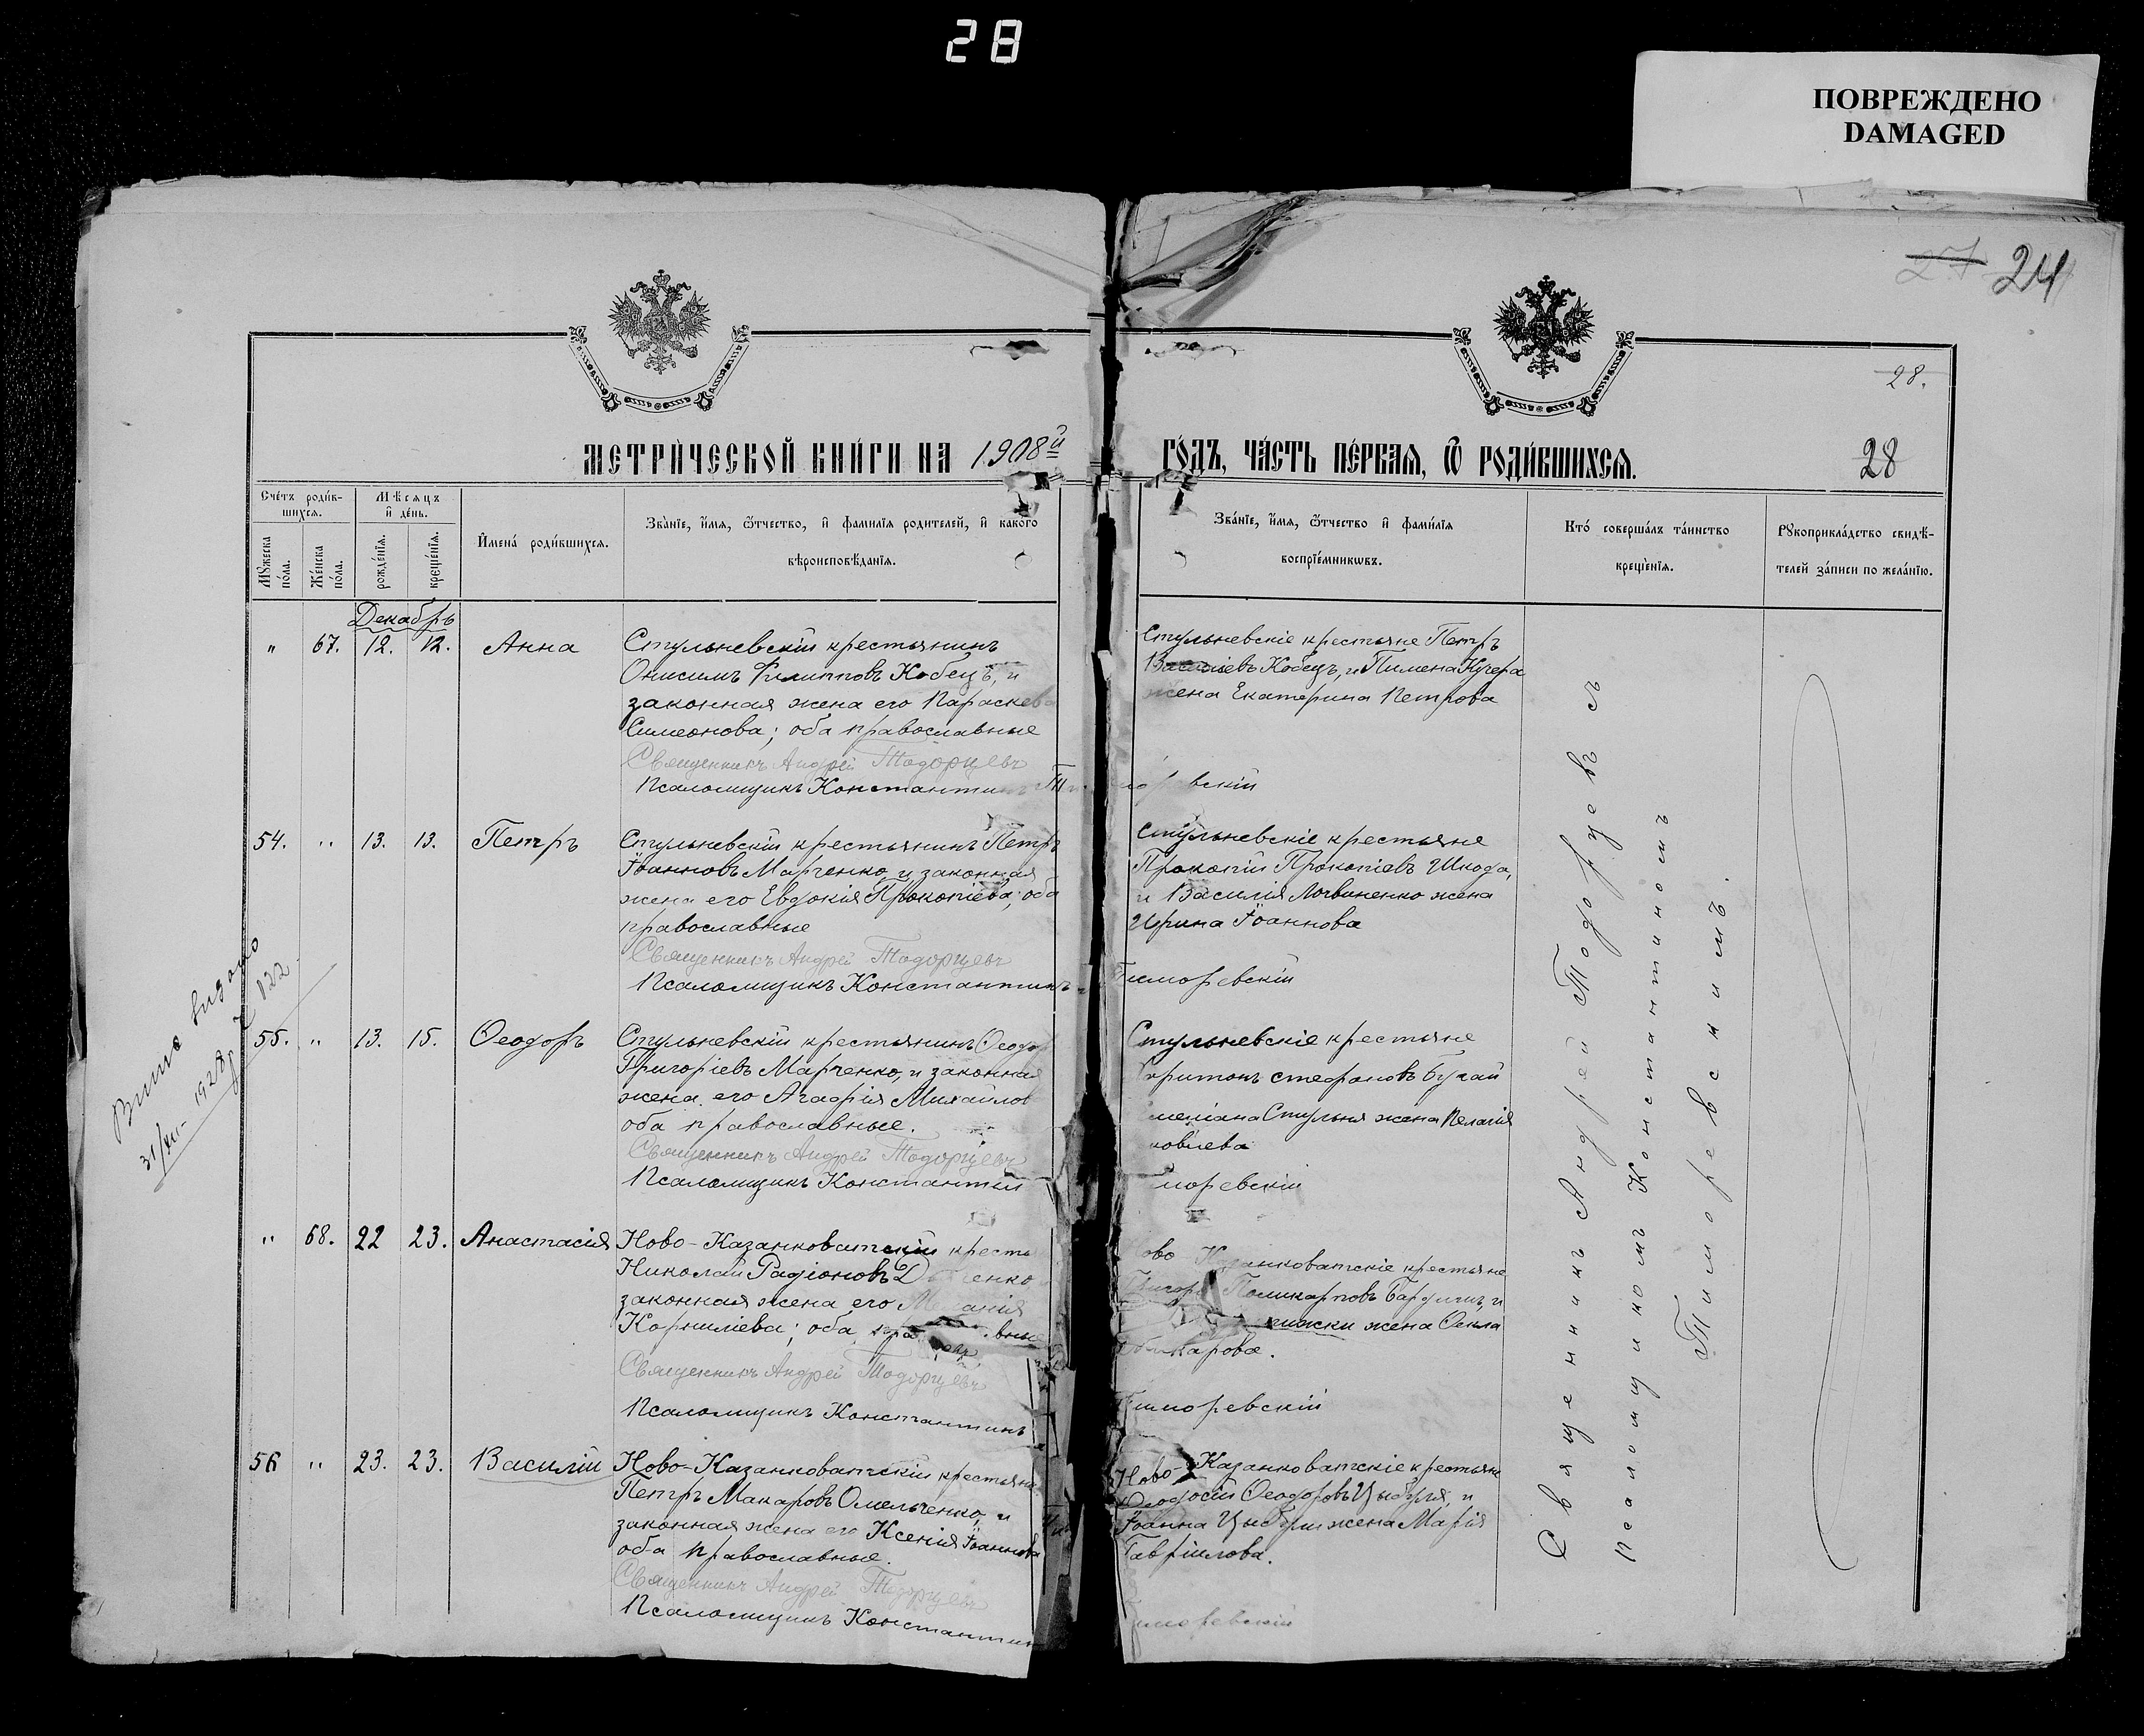 28
ПОВРЕЖДЕНО
DAMAGED
27 24
28.
МЕТРИ́ЧЕСКОЙ КНИ́ГИ НА 1908й
ГО́ДЪ, ЧА́СТЬ ПЕ́РВАЯ, Ѿ РОДИ́ВШИХСЯ.
28
Сче́тъ роди́в-
шихся.
Мѣсяцъ
и҆ де́нь.
Мꙋ́жеска
по́ла.
Же́нска
по́ла.
рожде́нїѧ.
креще́нїѧ.
И҆мена́ роди́вшихсѧ.
Зва́нїе, и҆́мѧ, ѻ҆́тчество, и҆ фами́лїѧ родителей, и҆ како́го
вѣроисповѣ́данїѧ.
Зва́нїе, и҆́мѧ, ѻ҆́тчество и҆ фами́лїѧ
воспрїе́мникѡвъ.
Кто́ соверша́лъ та́инство
креще́нїѧ.
Рꙋкоприкла́дство свидѣ́-
телей за́писи по жела́нїю.
Декабрь
" 67. 12. 12. Анна
Стульневскій крестьянинъ
Онисимъ Филипповъ Кобецъ, и
законная жена его Параскева
Симеонова; оба православные
Священникъ Андрей Тодорцевъ
Псаломщикъ Константинъ
Стульневскіе крестьяне Петръ
Василіевъ Кобецъ, и Пимена Кучера
жена Екатерина Петрова
54. " 13. 13. Петръ
Стульневскій крестьянинъ Петръ
Іоанновъ Марченко, и законная
жена его Евдокія Прокопіева; оба
православные
Священникъ Андрей Тодорцевъ
Псаломщикъ Константинъ Тиморевскій
Стульневскіе крестьяне
Прокопій Прокопіевъ Шкода,
и Василія Логвиненко жена
Ирина Іоаннова
55. " 13. 15. Ѳеодоръ
Стульневскій крестьянинъ Ѳеодор
Григоріевъ Марченко, и законная
жена его Агафія Михайлов
оба православные.
Священникъ Андрей Тодорцевъ
Псаломщикъ Константин моревскій
Стульневскіе крестьяне
Харитонъ Стефановъ Бугай
меліана Стульня жена Пелагія
ковлева
" 68. 22 23. Анастасія
Ново-Казанковатскій кресть
Николай Радіоновъ
законная жена его
Корниліева; оба
Священникъ Андрей Тодорцевъ
Псаломщикъ Константинъ Тиморевскій
Ново Казанковатскіе крестьяне
Григор Поликарповъ и
жена
карпова.
56 " 23. 23. Василій
Ново-Казанковатскій крестьянин
Петръ Макаровъ Омельченко, и
законная жена его Ксенія Іоаннова
оба православные.
Священникъ Андрей Тодорцевъ
Псаломщикъ Константин иморевскій
Ново-Казанковатскіе крестьяне
Ѳеодосій Ѳеодоровъ Цыбуля, и
Іоанна Цыбули жена Марія
Гавріилова.
Священникъ Андрей Тодорцевъ съ
Псаломщикомъ Константиномъ
Тиморевскимъ.
Витяг видано
31/XII- 1928 р 122